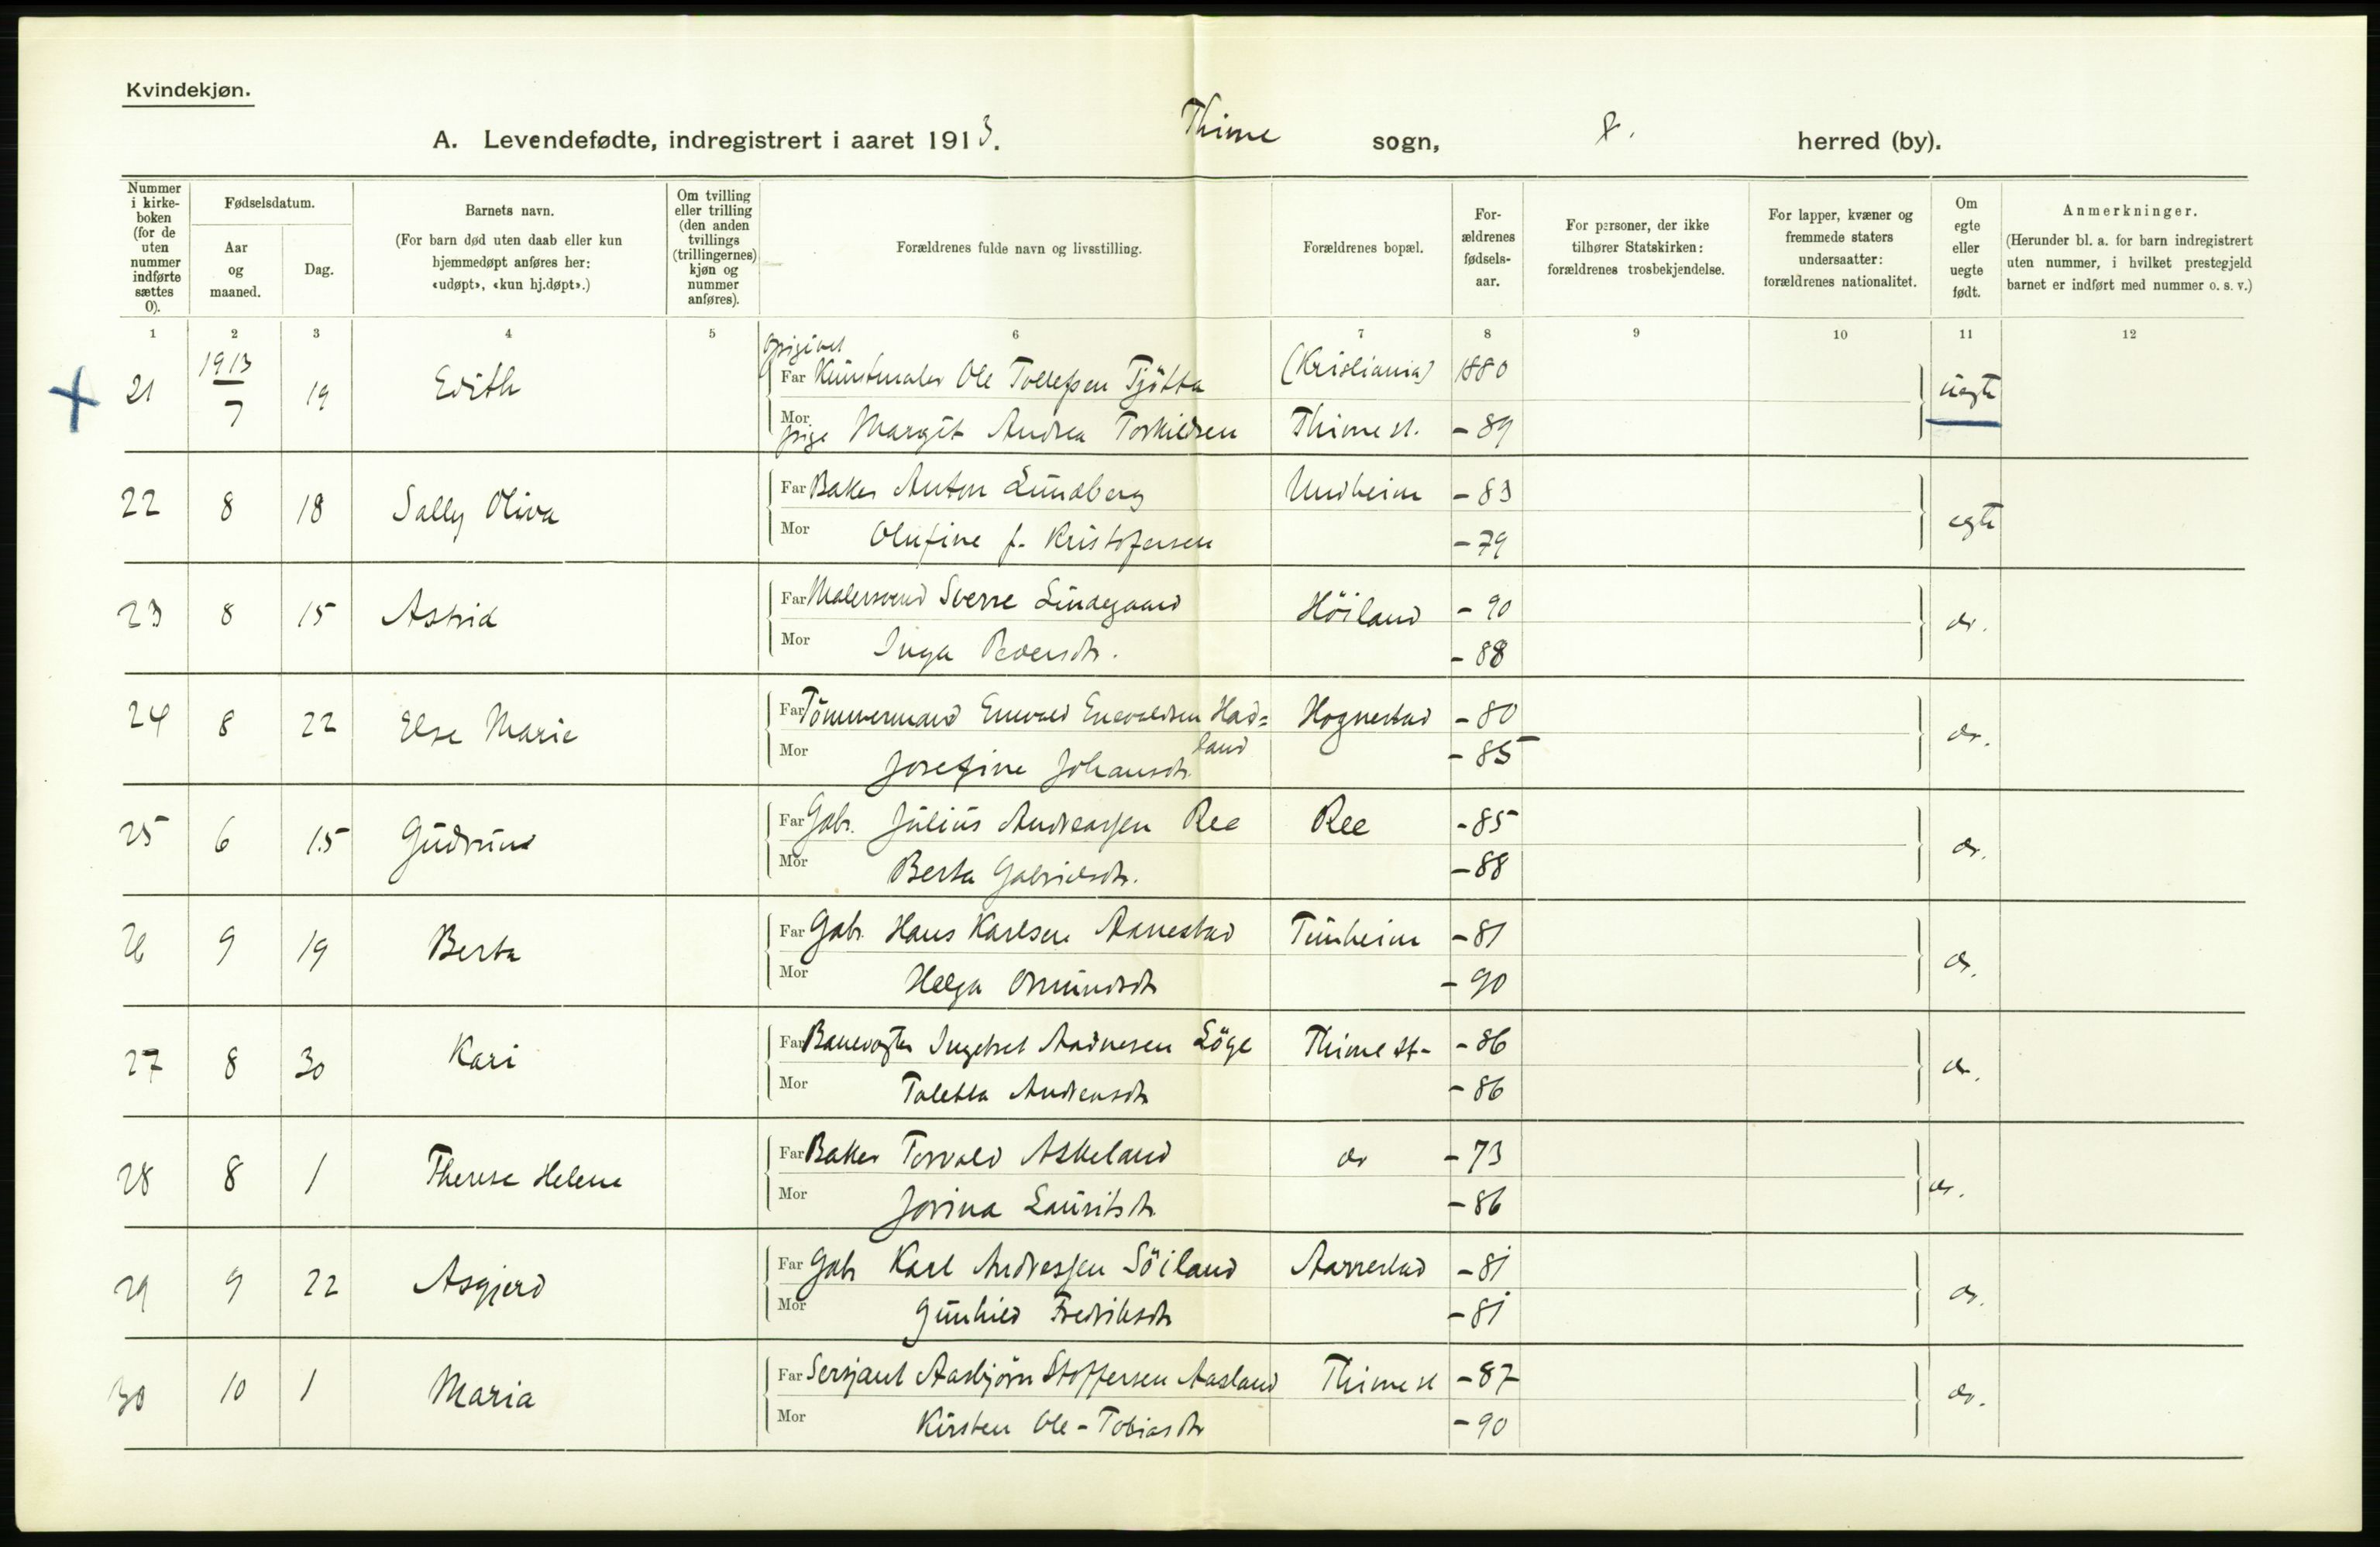 Kvindekjøn.
A. Levendefødte, indregistrert i aaret 1913. Thime sogn, herred (by).
Nummer i kirke-boken (for de uten nummer indførte sættes 0).
Fødselsdatum.
Aar og maaned.
Dag.
Barnets navn.
(For barn død uten daab eller kun hjemmedøpt anføres her: «udøpt», «kun hj.døpt».)
Om tvilling eller trilling (den anden tvillings (trillingernes) kjøn og nummer anføres).
Forældrenes fulde navn og livsstilling.
Forældrenes bopæl.
For-ældrenes fødsels-aar.
For personer, der ikke tilhører Statskirken: forældrenes trosbekjendelse.
For lapper, kvæner og fremmede staters undersaatter: forældrenes nationalitet.
Om egte eller uegte født.
Anmerkninger.
(Herunder bl. a. for barn indregistrert uten nummer, i hvilket prestegjeld barnet er indført med nummer o. s. v.)
1 2 3 4 5 6 7 8 9 10 11 12
Opgivet
21 1913 7 19 Edith Far Kunstmaler Ole Tollefsen Tjötta (Kristiania) 1880 uegte
Mor pige Margit Andrea Torkildsen Thime st. - 89
22 8 18 Sally Oliva Far Baker Anton Lundberg Undheim - 83 egte
Mor Olufine f. Kristofersen - 79
23 8 15 Astrid Far Malersvend Sverre Lindegaard Höiland - 90 do.
Mor Inga Pedersdtr. - 88
24 8 22 Else Marie Far Tömmermand Enevald Enevaldsen Had= Hognestad - 80 do.
land
Mor Josefine Johansdtr. - 85
25 6 15 Gudrund Far Gbr. Julius Andreassen Ree Ree - 85 do.
Mor Berta Gabrielsdtr. - 88
26 9 19 Berta Far Gbr. Hans Karlsen Aarrestad Tunheim - 81 do.
Mor Helga Osmundsdtr - 90
27 8 30 Kari Far Banevogter Ingebret Aadnesen Löge Thime st- - 86 do.
Mor Taletta Andreasdtr - 86
28 8 1 Therese Helene Far Baker Torvald Askeland do - 73 do.
Mor Jorina Lauritsdtr - 86
29 9 22 Asgjerd Far Gbr Karl Andressen Söiland Aarrestad - 81 do.
Mor Gunhild Fredriksdtr - 81
30 10 1 Maria Far Sersjant Aasbjörn Stoffersen Aasland Thime st - 87 do.
Mor Kirsten Ole-Tobiasdtr - 90